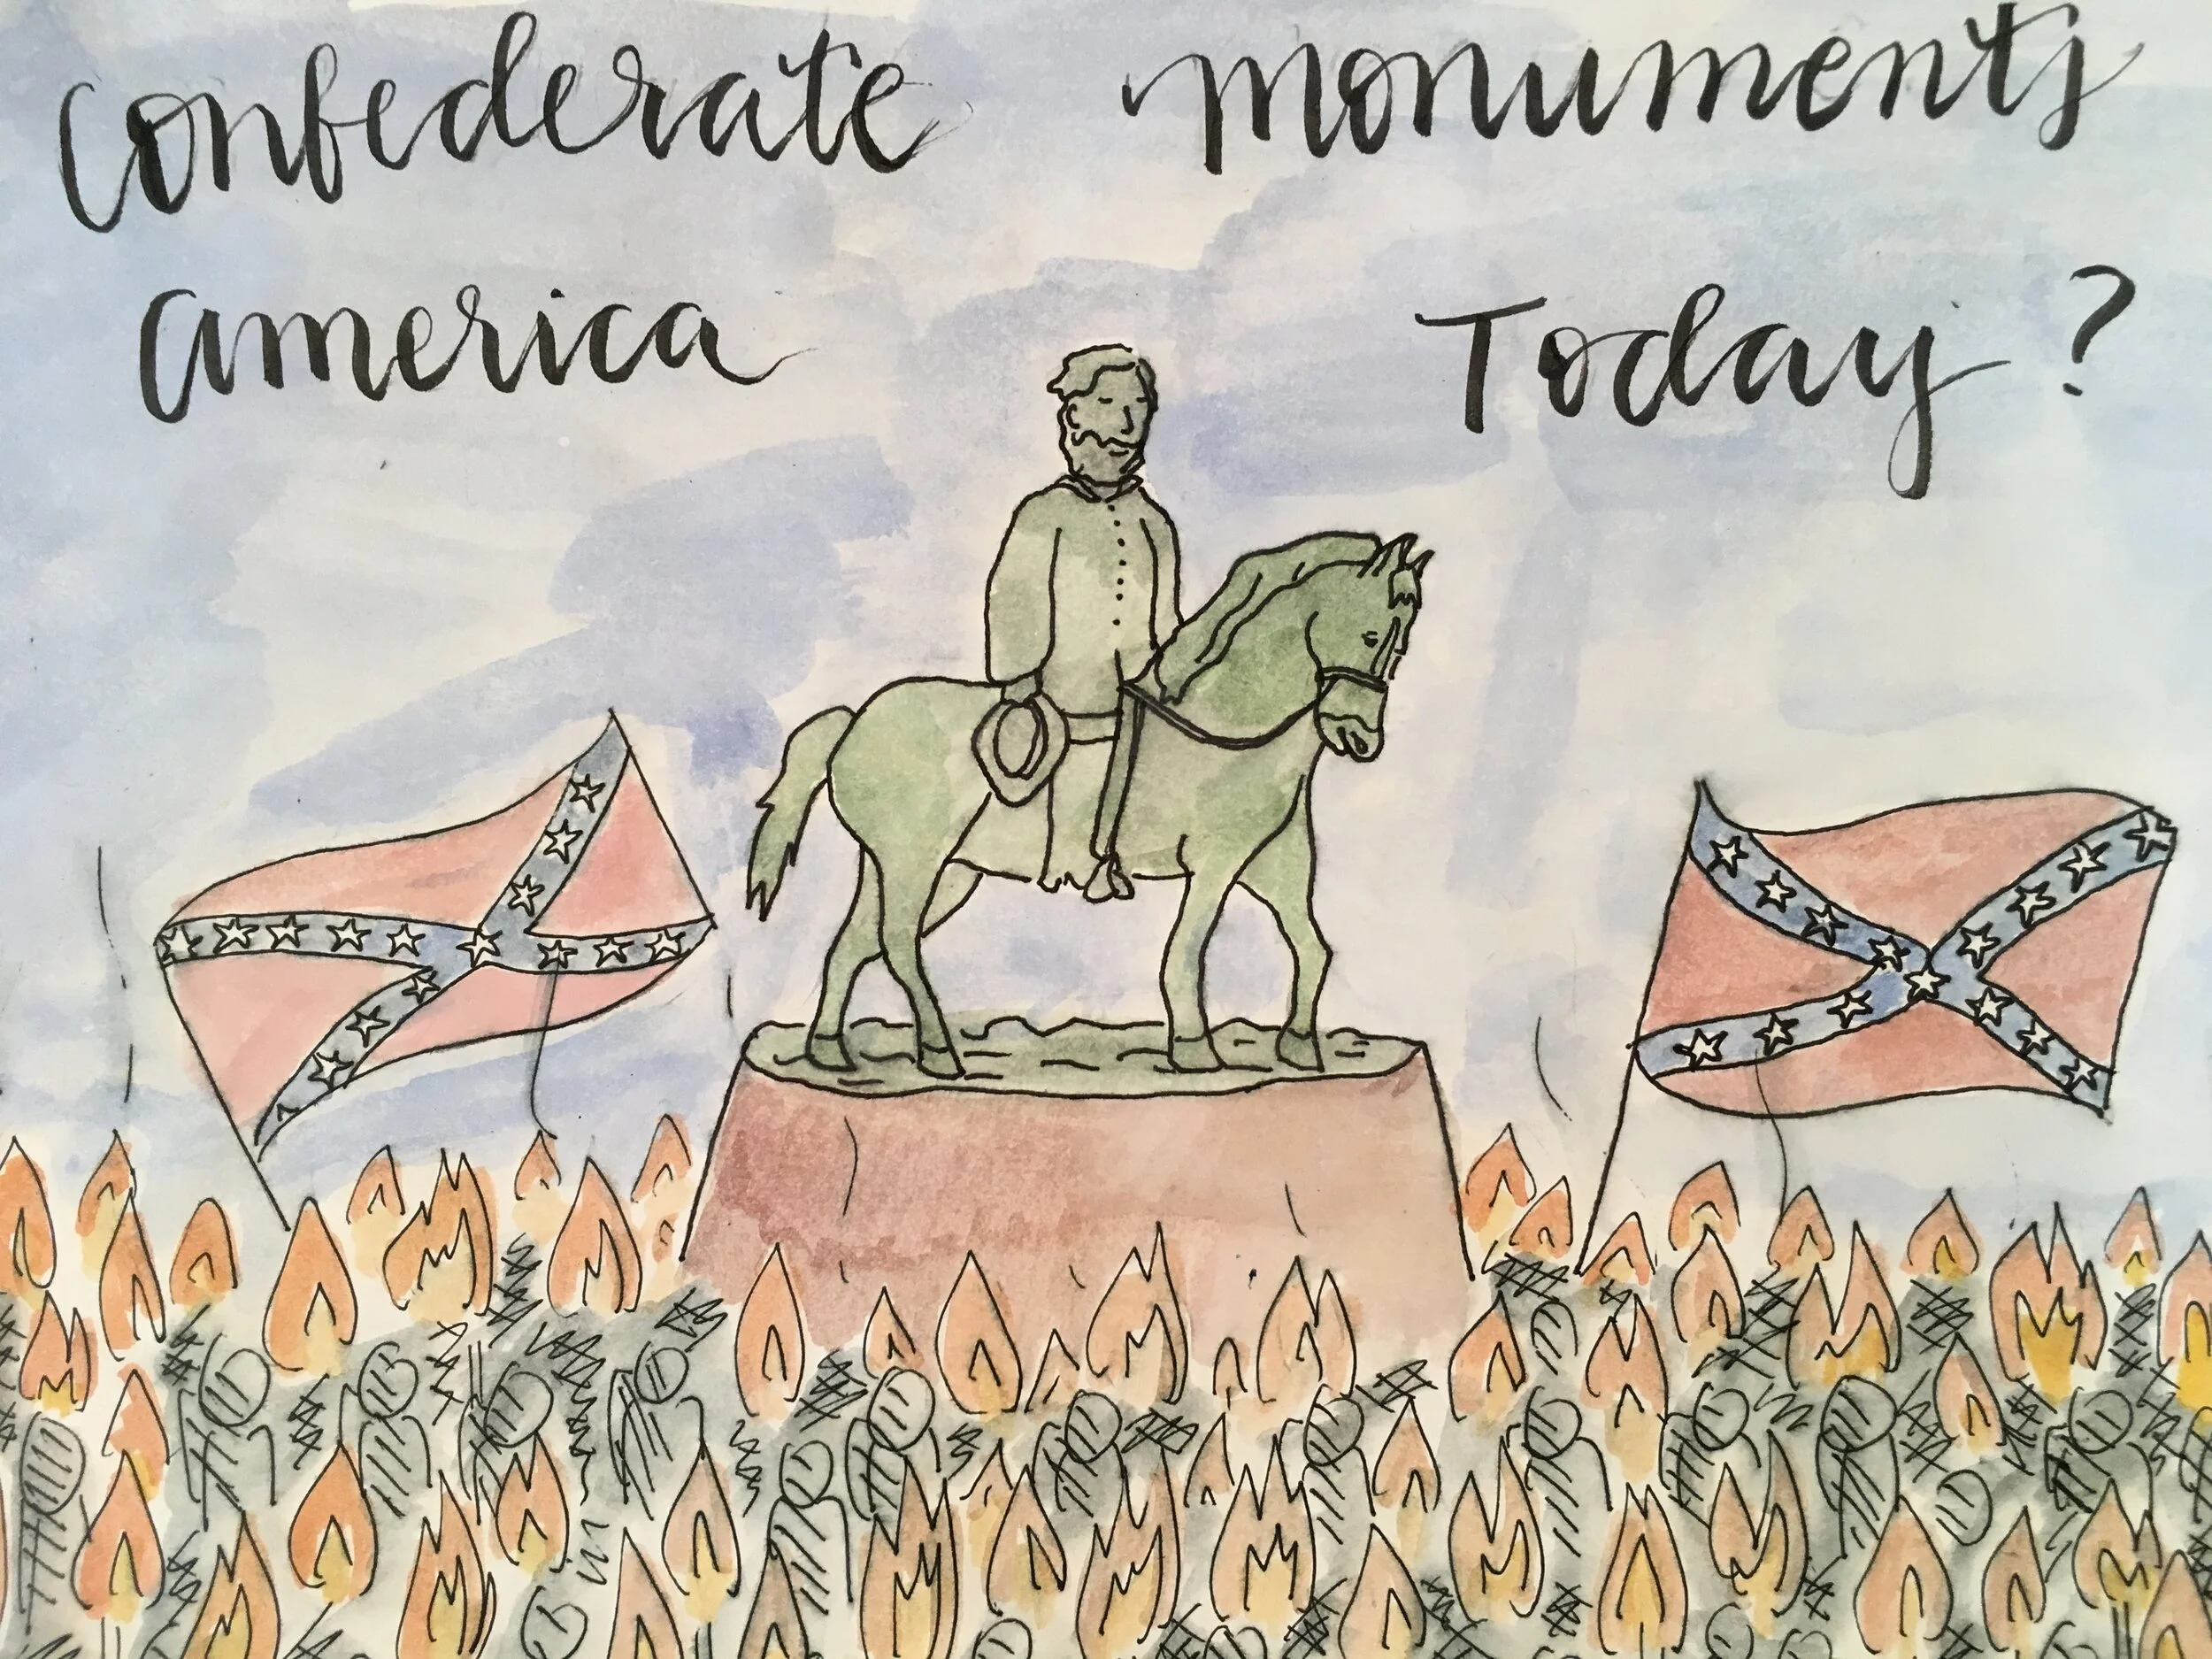 Confederate monuments
america Today?